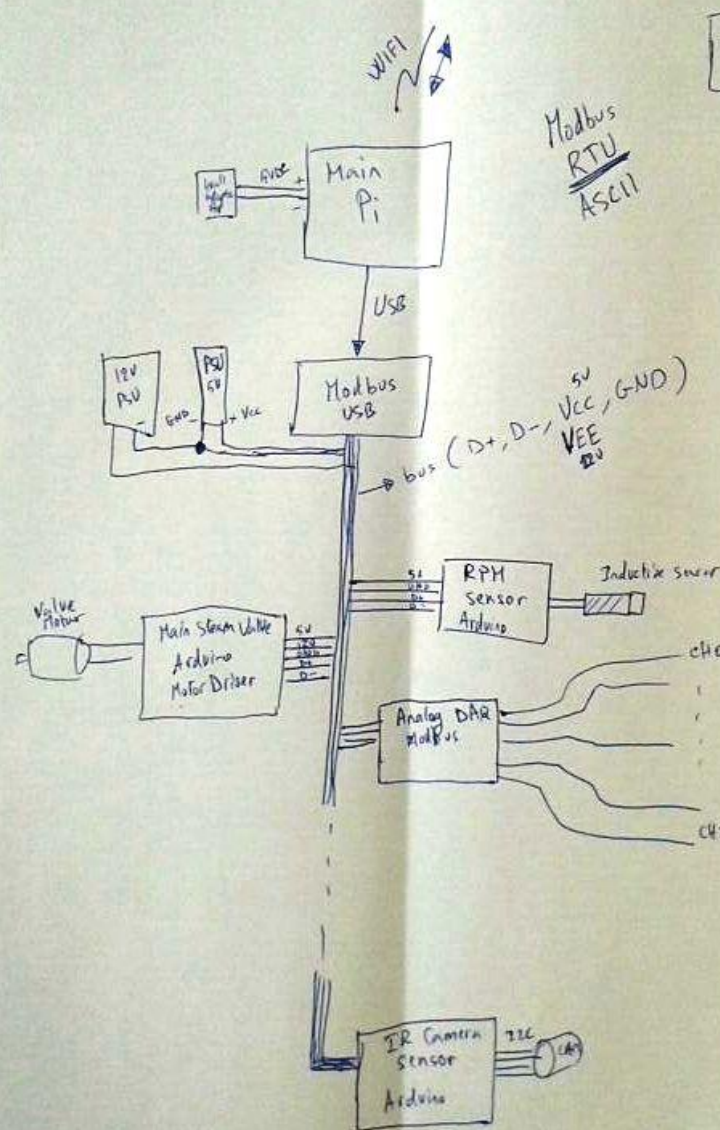 WIFI
Modbus
RTU
ASCII
Main
Pi
+
-
USB
12V
PSU
-
PSU
5V
GND -
+ Vcc
Modbus
USB
bus (D+, D-, VCC, GND)
5V
VEE
12V
5V
GND
D+
D-
RPM
sensor
Arduino
Inductive sensor
Valve
Motor
Main Steam Valve
Arduino
Motor Driver
5V
12V
GND
D+
D-
Analog DAQ
ModBus
CH
CH
IR Camera
sensor
Arduino
I2C
CAM